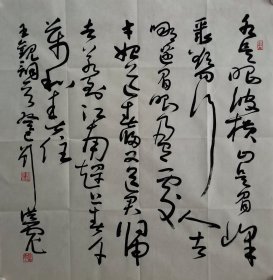 水是眼波横山是眉峰
聚欲問行人去
那邊眉眼盈盈處
才始送春歸又送君歸
去若到江南趕上春千
萬和春住
王觀詞